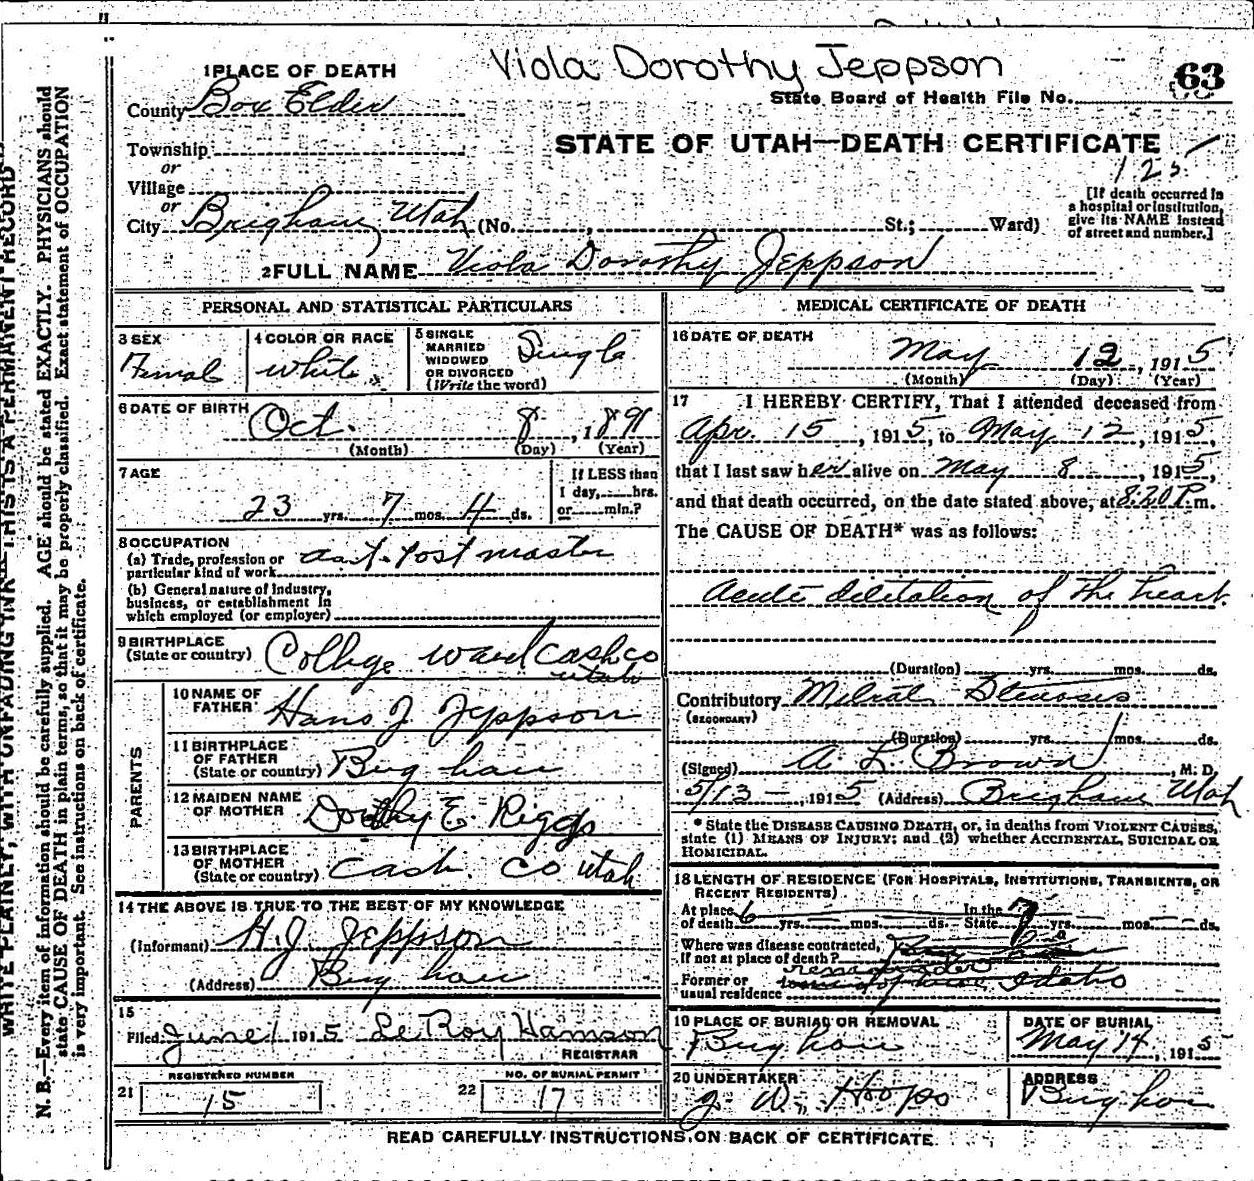 Viola Dorothy Jeppson
63
1 PLACE OF DEATH
State Board of Health File No.
County Box Elder
STATE OF UTAH—DEATH CERTIFICATE
125
Township
or
Village
or
City Brigham Utah (No. , St.; Ward)
[If death occurred in a hospital or institution, give its NAME instead of street and number.]
2 FULL NAME Viola Dorothy Jeppson
PERSONAL AND STATISTICAL PARTICULARS
3 SEX
Femal
4 COLOR OR RACE
white
5 SINGLE
MARRIED
WIDOWED
OR DIVORCED
(Write the word)
Single
6 DATE OF BIRTH
Oct. 8, 1891
(Month) (Day) (Year)
7 AGE
23 yrs. 7 mos. 4 ds.
If LESS than
1 day, hrs.
or min.?
8 OCCUPATION
(a) Trade, profession or
particular kind of work
ast. Post master
(b) General nature of industry,
business, or establishment in
which employed (or employer)
9 BIRTHPLACE
(State or country)
College ward Cash co
utah
PARENTS
10 NAME OF
FATHER
Hans J Jeppson
11 BIRTHPLACE
OF FATHER
(State or country)
Brigham
12 MAIDEN NAME
OF MOTHER
Dorothy E. Riggs
13 BIRTHPLACE
OF MOTHER
(State or country)
Cash. Co utah
14 THE ABOVE IS TRUE TO THE BEST OF MY KNOWLEDGE
(Informant) H. J. Jeppson
(Address) Brigham
15
Filed June 1 1915 LeRoy Hamson
REGISTRAR
REGISTERED NUMBER
21 15
NO. OF BURIAL PERMIT
22 17
MEDICAL CERTIFICATE OF DEATH
16 DATE OF DEATH
May 12, 1915
(Month) (Day) (Year)
17 I HEREBY CERTIFY, That I attended deceased from
Apr. 15, 1915, to May 12, 1915,
that I last saw her alive on May 8, 1915,
and that death occurred, on the date stated above, at 8:20 P.m.
The CAUSE OF DEATH* was as follows:
Acute dilitation of the heart.
(Duration) yrs. mos. ds.
Contributory Mitral Stenosis
(SECONDARY)
(Duration) yrs. mos. ds.
(Signed) A. L. Brown, M. D.
5/13-, 1915 (Address) Brigham Utah
* State the DISEASE CAUSING DEATH, or, in deaths from VIOLENT CAUSES,
state (1) MEANS OF INJURY; and (2) whether ACCIDENTAL, SUICIDAL OR
HOMICIDAL.
18 LENGTH OF RESIDENCE (FOR HOSPITALS, INSTITUTIONS, TRANSIENTS, OR
RECENT RESIDENTS)
At place
of death 6 yrs. mos. ds. In the
State 7 yrs. mos. ds.
Where was disease contracted,
If not at place of death?
Former or
usual residence Idaho
19 PLACE OF BURIAL OR REMOVAL
Brigham
DATE OF BURIAL
May 14, 1915
20 UNDERTAKER
J. W. Hoops
ADDRESS
Brigham
READ CAREFULLY INSTRUCTIONS ON BACK OF CERTIFICATE
WRITE PLAINLY, WITH UNFADING INK—THIS IS A PERMANENT RECORD
N. B.—Every item of information should be carefully supplied. AGE should be stated EXACTLY. PHYSICIANS should
state CAUSE OF DEATH in plain terms, so that it may be properly classified. Exact statement of OCCUPATION
is very important. See instructions on back of certificate.